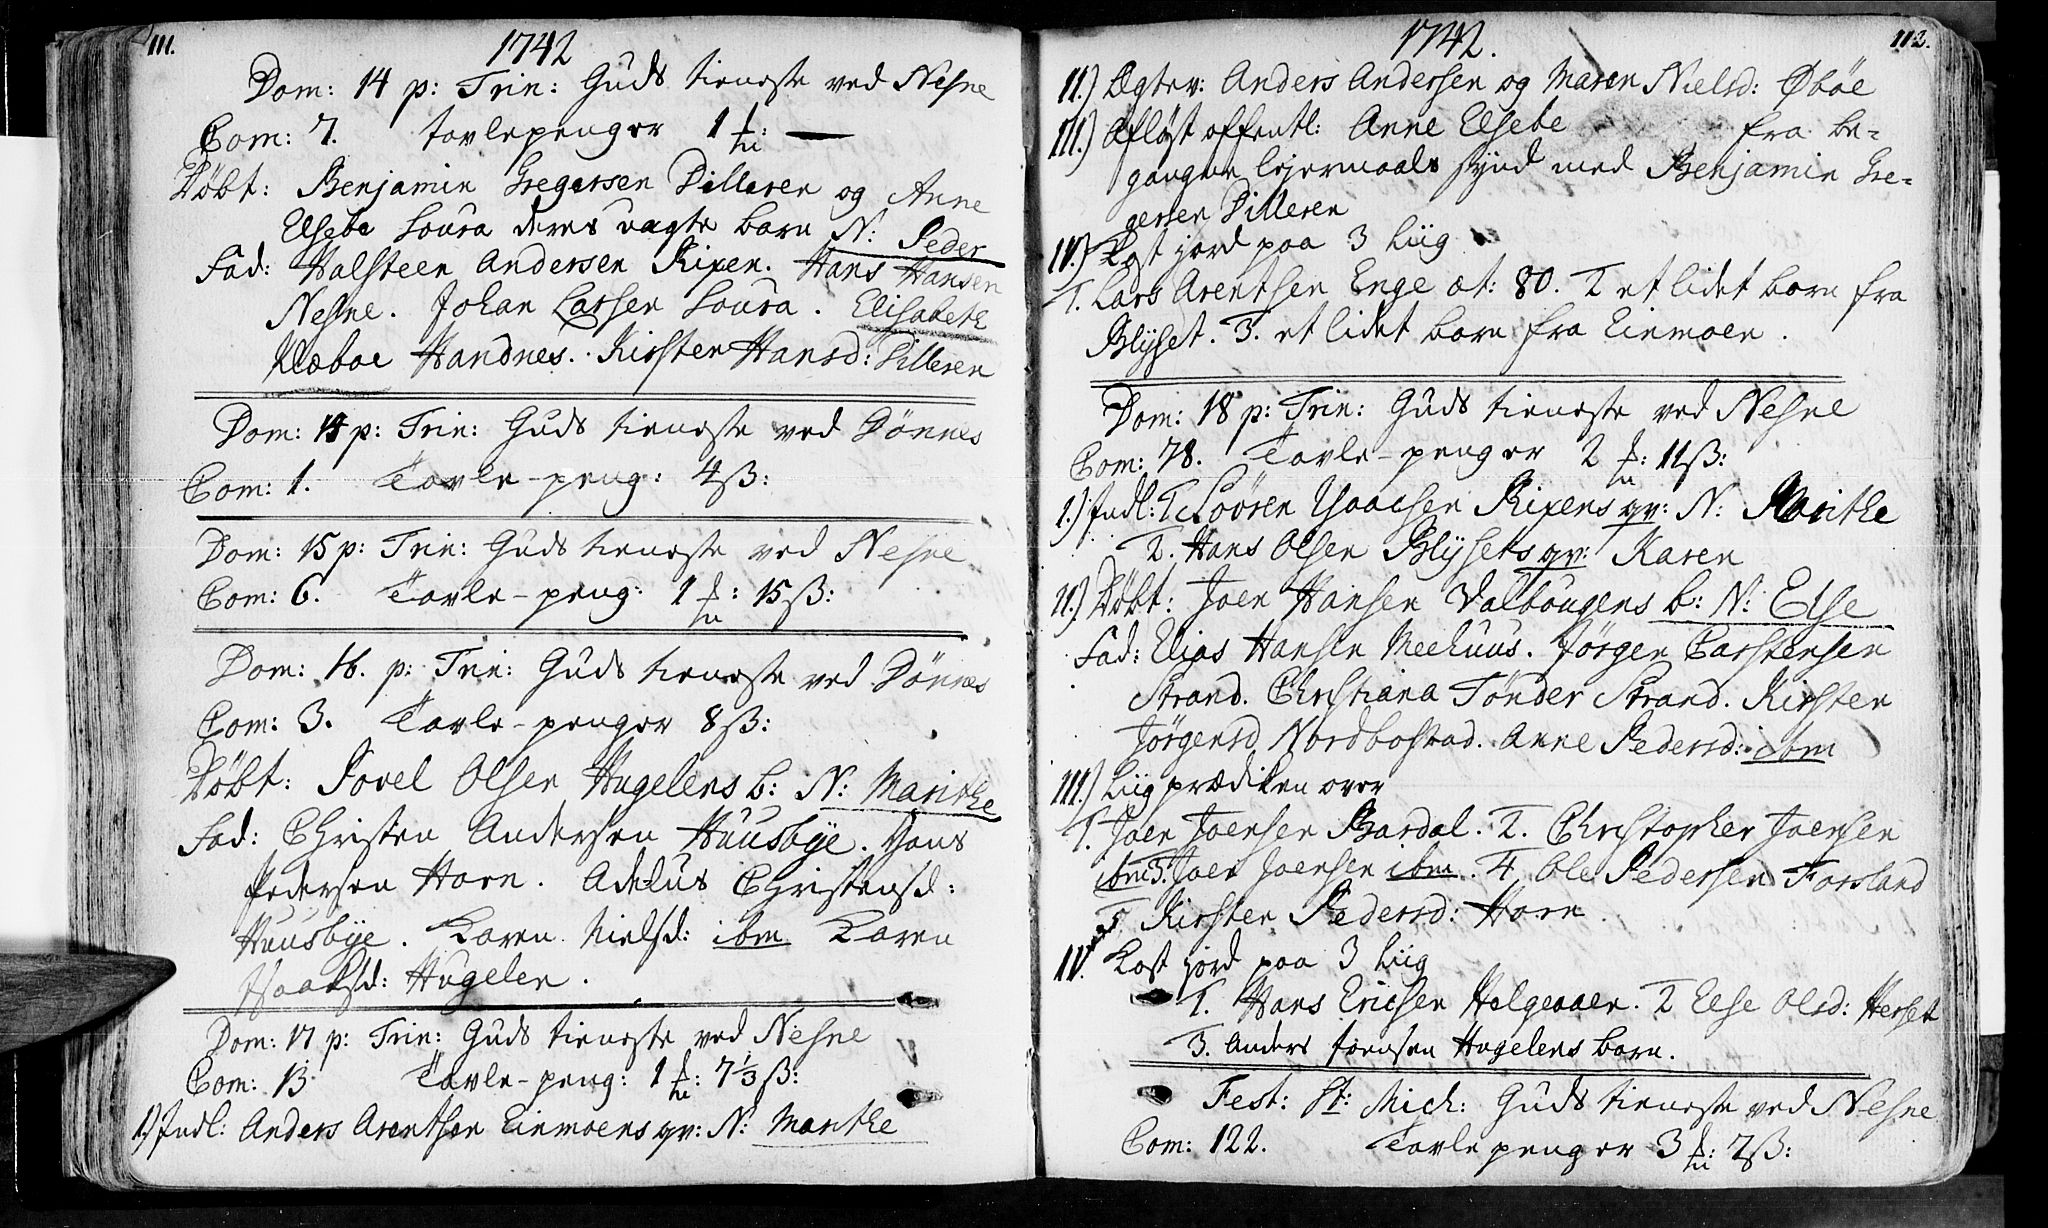 111.
1742
Dom: 14 p: Trin: Guds tieneste ved Nesne
Com: 7. tavlepenger 1
Døbt: Benjamin Gregersen Dilleren og Anne
Elsebe Soura deres uægte barn N: Peder
Fad: Halsteen Andersen Rixen. Hans Hansen
Nesne. Johan Larsen Soura. Elisabeth
Klæboe Handnes. Kirsten Hansd: Dilleren
Dom: 14 p: Trin: Guds tieneste ved Dønnes
Com: 1. Tavle-peng: 4ß:
Dom: 15 p: Trin: Guds tieneste ved Nesne
Com: 6. Tavle-peng: 1 : 15ß:
Dom: 16. p: Trin: Guds tieneste ved Dønnes
Com: 3. Tavle-penger 8ß:
Døbt: Jovel Olsen Hugelens b: N: Marithe
Fad: Christen Andersen Huusbye. Hans
Pedersen Horn. Adelus Christensd:
Huusbye. Karen Nielsd: ibm Karen
Isaaksd: Hugelen.
Dom: 17 p: Trin: Guds tieneste ved Nesne
Com: 13 Tavle-peng: 1 : 7⅓ß:
1.) Indl: Anders Arentsen Einmoens qv: N: Marithe
112.
1742.
11.) Ægtev: Anders Andersen og Maren Nielsd: Øbøe
111.) Afløst offentl: Anne Elsebe fra be-
gangne lejermaals synd med Benjamin Gre-
gersen Dilleren
IV.) Kast jord paa 3 Liig
1. Lars Arentsen Enge æt: 80. 2 et lidet barn fra
Blyset. 3. et lidet barn fra Einmoen.
Dom: 18 p: Trin: Guds tieneste ved Nesne
Com: 78. Tavle-penger 2 : 11ß:
1.) Indl: 1 Søören Isaacsen Rixens qv: N: Marithe
2. Hans Olsen Blysets qv: Karen
11.) Døbt: Joen Hansen Valbougens b: N: Else
Fad: Elias Hansen Meehuus. Jørgen Carstensen
Strand. Christiana Tønder Strand. Kirsten
Jørgensd Nordbostad. Anne Pedersd: ibm
111.) Liigprædiken over
1. Joen Joensen Bardal. 2. Christopher Joensen
ibm 3. Joen Joensen ibm. 4 Ole Pedersen Forsland
5 Kirsten Pedersd: Horn.
IV. Kast jord paa 3 Liig
1. Hans Ericsen Helgeaaen. 2 Else Olsd: Herset
3. Anders Joensen Hugelens barn.
Fest: St: Mich: Guds tieneste ved Nesne
Com: 122. Tavlepenger 3 : 7ß: